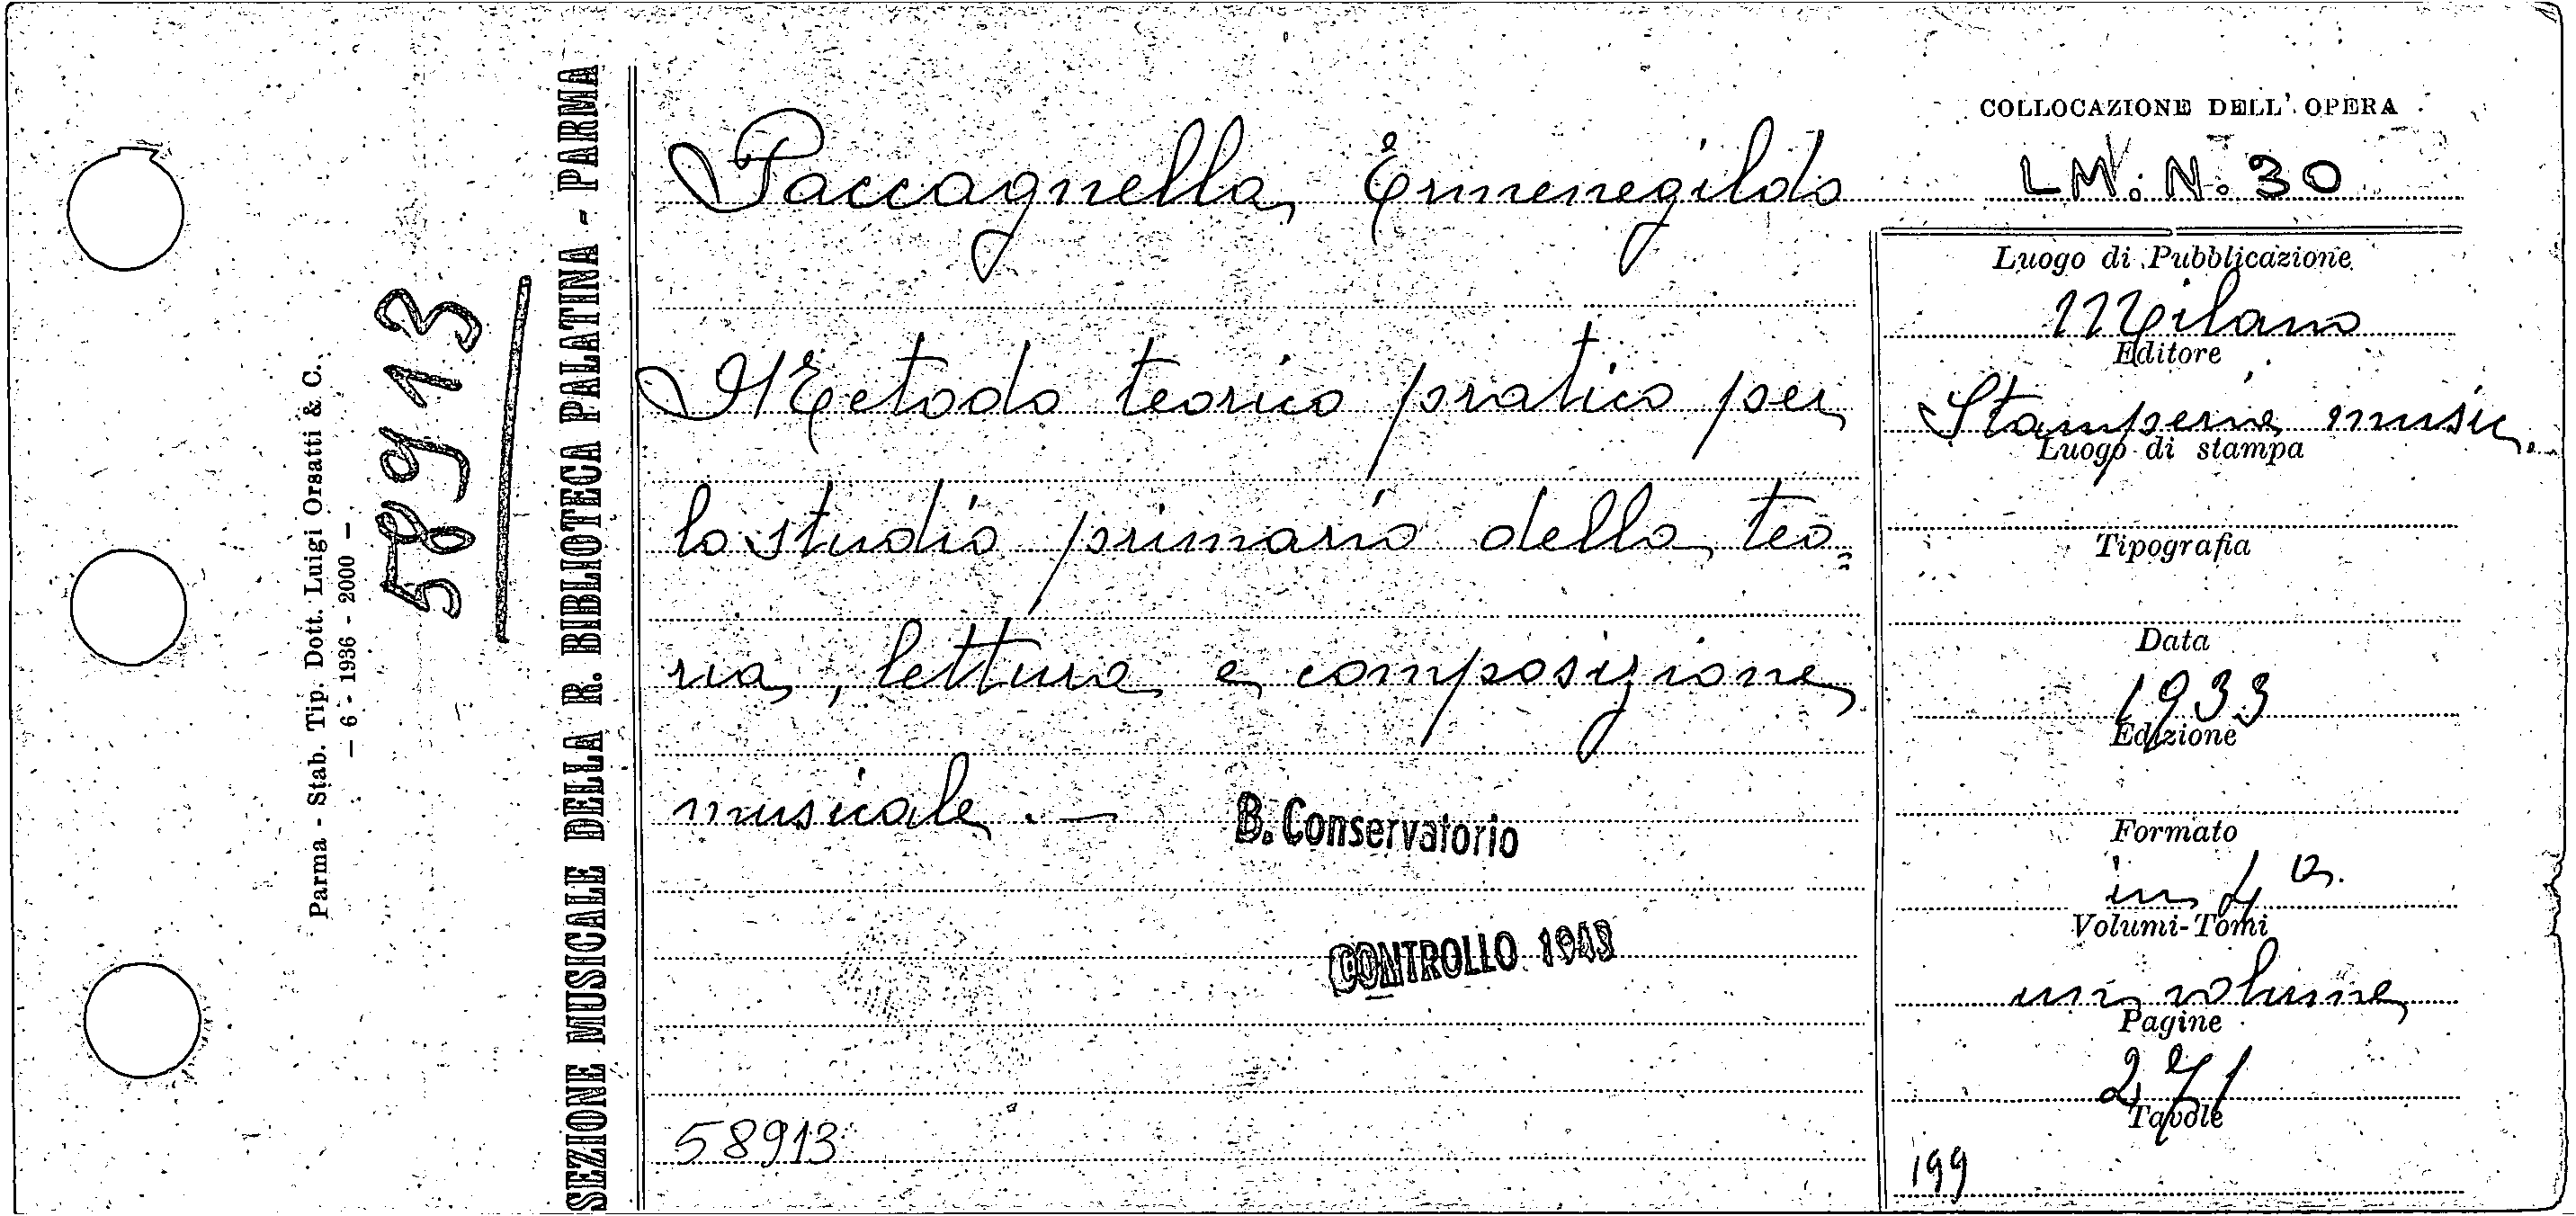 Parma - Stab. Tip. Dott. Luigi Orsatti & C.
— 6 - 1936 - 2000 —
58913
SEZIONE MUSICALE DELLA R. BIBLIOTECA PALATINA - PARMA
Paccagnella Ermenegildo
Metodo teorico pratico per
lo studio primario della teo=
ria, lettura e composizione
musicale. —
B. Conservatorio
CONTROLLO 1943
58913
COLLOCAZIONE DELL' OPERA
LM. N. 30
Luogo di Pubblicazione
Milano
Editore
Stamperia music.
Luogo di stampa
Tipografia
Data
1933
Edizione
Formato
in 4º.
Volumi-Tomi
un volume
Pagine
271
Tavole
199